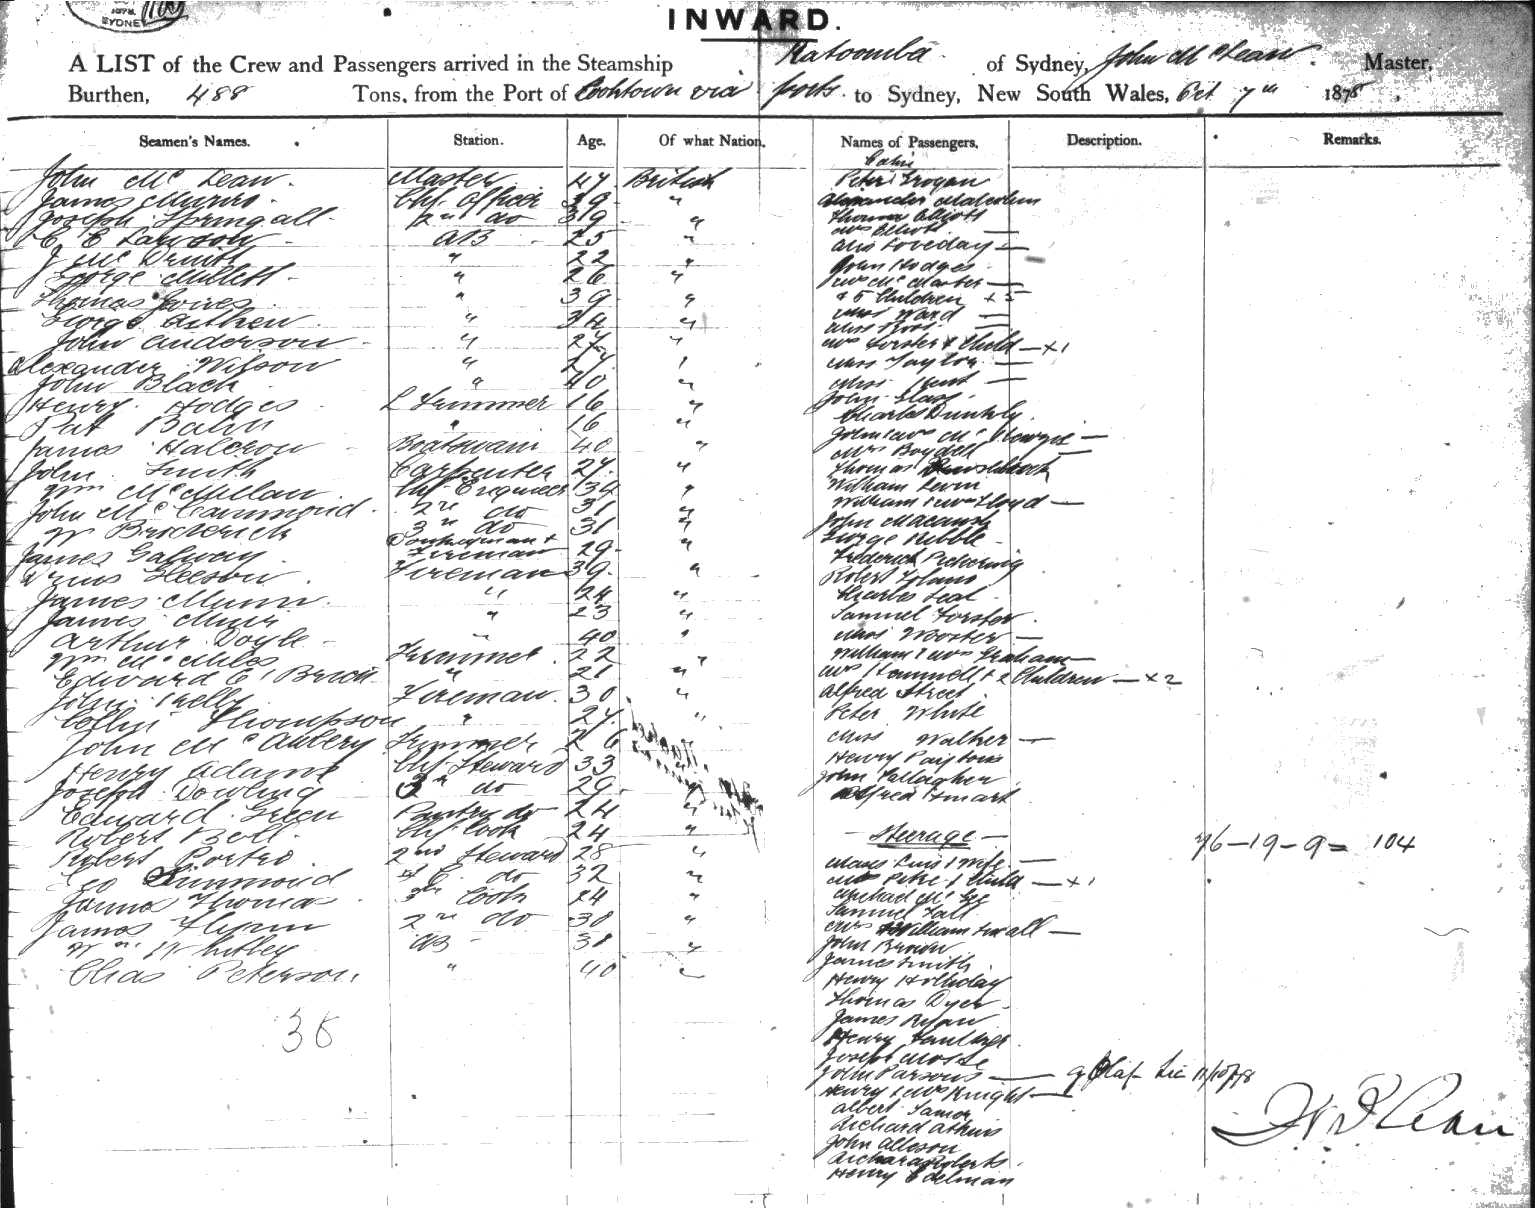 SYDNEY
INWARD.
A LIST of the Crew and Passengers arrived in the Steamship Katoomba of Sydney, John McLean Master,
Burthen, 488 Tons, from the Port of Cooktown via ports to Sydney, New South Wales, Oct 7th 1878
Seamen's Names. Station. Age. Of what Nation. Names of Passengers, Description. Remarks.
John McLean. Master 47 British
James Munro. Chf. Officer 39 "
Joseph Springall 2nd do 39 "
C E Lawson AB 25 "
J McDevitt " 22 "
George Millett " 26 "
Thomas Jones " 39 "
George Aitken " 34 "
John Anderson " 27 "
Alexander Wilson " 27 "
John Black " 40 "
Henry Hodges L Trimmer 16 "
Pat " 16 "
James Halcrow Boatswain 40 "
John Smith Carpenter 27 "
Wm McMillan Chf Engineer 34 "
John McCammond 2nd do 31 "
W Broderick 3rd do 31 "
James Galway Donkeyman + Fireman 29 "
Gleeson Fireman 39 "
James Munn " 24 "
James Muir " 23 "
Arthur Doyle " 40 "
Wm Trimmer 22 "
Edward C " 21 "
John Kelly Fireman 30 "
Collin Thompson " 27 "
John McAulery Trimmer 26 "
Henry Adams Chf Steward 33 "
Joseph Dowling 2nd do 29 "
Edward Green Pantry do 24 "
Robert Bell Chf Cook 24 "
Robert Porteo 2nd Steward 28 "
Geo Simmond S C. do 32 "
James Thomas 3rd Cook 24 "
James Flynn 2nd do 30 "
Wm Whitley AB 38 "
Chas Peterson " 40 "
38
Cabin
Peter Grogan
Alexander Malcolm
Thomas Elliott
Mrs Elliott
Miss Loveday
John Hodges
Mrs McMaster
& 5 Children + 5
Mrs Ward
Miss Ross
Mrs Forster & Child + 1
Miss Taylor
Miss Kent
John Glass
Charles Dunkly
John & Mrs Mc
Mrs Boydell
Thomas
William Levin
William & Mrs Lloyd
John Macansh
George Kibble
Frederick Pickering
Robert
Charles Leal
Samuel Forster
Mrs Wooster
William & Mrs Graham
Mrs Hammell & 2 Children + 2
Alfred Street
Peter White
Miss Walker
Henry
John Gallagher
Alfred Smart
Steerage
Moses Luis & Wife
Mrs Petre & Child + 1
Michael McGee
Samuel Tall
Mrs William Small
John Brown
James Smith
Henry Holliday
Thomas Dyer
James Ryan
Henry
Joseph Mosse
John Parsons
Henry & Mrs Knight
Albert
Richard Atkins
John Allison
Richard Roberts
Henry Edelman
76 - 19 - 9 = 104
11/10/78